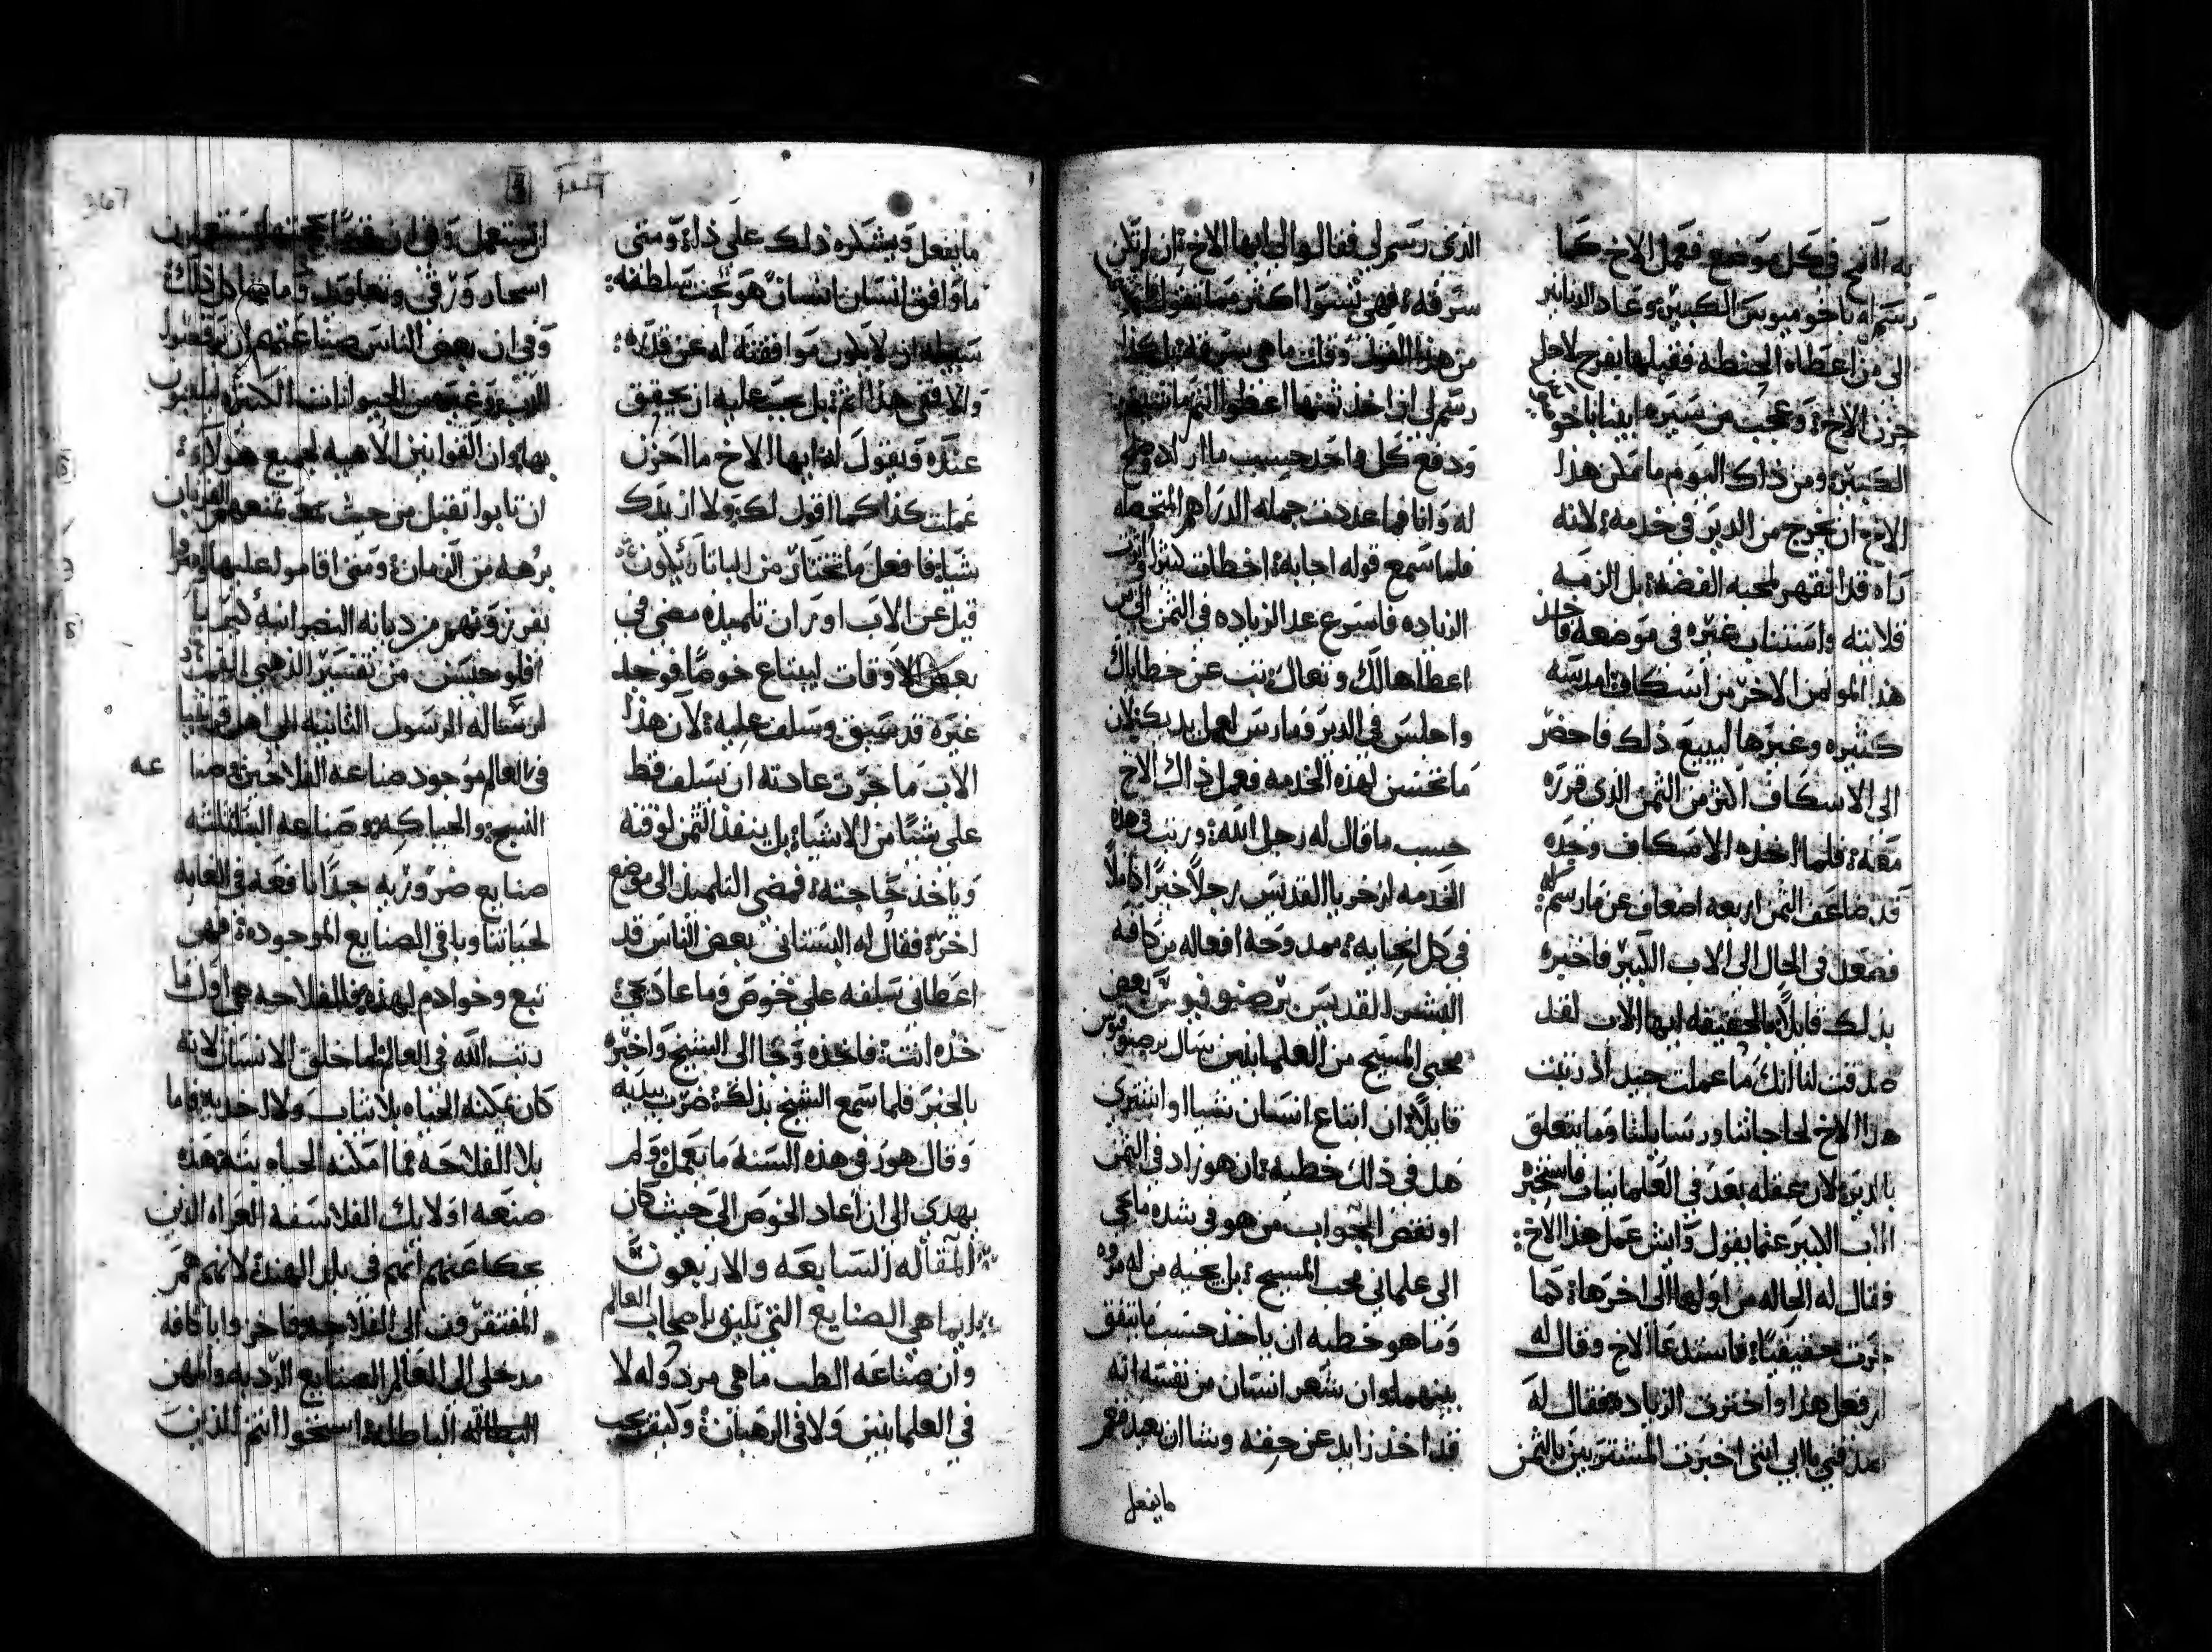 به الدنح في كل موضع فعمل الاخ كما
رسم له باخوميوس الكبير وعاد الدنانير
الى من اعطاه الحنطه فقبلها بفرح لاجل
حزن الاخ وعجب من سيره ابينا باخوميوس
الكبير ومن ذاك اليوم ما مكن هذا
الاخ ان يخرج من الدير في خدمه لانه
راه قد انقهر لمحبه الفضه بل الزمه
قلايته واستناب غيره في موضعه فاخذ
هذا الموتمن الاخر من اسكاف امدسه
كثيره وغيرها ليبيع ذلك فاحضر
الى الاسكاف اكثر من الثمن الذي قرره
معه فلما اخذه الاسكاف وجده
قد ضاعف الثمن اربعه اضعاف عن ما رسم له
فصعد في الحال الى الاب الكبير فاخبره
بذلك قايلاً بالحقيقه ايها الاب لقد
صدقت لنا انك ما عملت جيد اذ رتبت
هذا الاخ لحاجاتنا ورسايلنا وما يتعلق
بالدير لان عقله بعد في العلمانيات فاستخبر
الاب الكبير عما يقول وايش عمل هذا الاخ
وقال له الحاله من اولها الى اخرها كما
جرت حقيقياً فاستدعا الاخ وقال له
لم فعل هذا واخترت الزياده فقال له
صدقني يا ابي انني اخبرت المشتريين بالثمن
الذي رسم لي فقالوا لي ايها الاخ ان لم تكن
سرقه فهي تسوا اكثر مما تقول
من هذا القول وقلت ما هي سرقه بل كذا
رسم لي ان اخذ ثمنها اعطوا انتم ما تشتهون
ودفع كل واحد حسب ما اراد وصلح
له وانا فما عددت جمله الدراهم المتحصله
فلما سمع قوله اجابه اخطات كثيراً اذ اثرت
الزياده فاسرع عد الزياده في الثمن الى من
اعطاها لك وتعال تب عن خطاياك
واجلس في الدير ومارس لعمل يديك لان
ما تحسن لهذه الخدمه فعمل ذاك الاخ
حسب ما قال له رجل الله ورتب في هذه
الخدمه لزخريا القديس رجلاً خبراً كاملاً
في كل ايجابه ممدوحه افعاله من كافه
البشر القديس برصنوفيوس بعض
محبي المسيح من العلمانيين سال برصنوفيوس
قايلاً ان ابتاع انسان شيا او اشتري
هل في ذلك خطيه ان هو زاد في الثمن
او نقص الجواب من هو في شده ما يجي
الى علماني محب المسيح بل يجيه من له مروه
وما هو خطيه ان ياخذ حسب ما يتفق
بينهما وان شعر انسان من نفسه انه
قد اخذ زايد عن حقه وشا ان يعيد فنعم
ما يفعل
ما يفعل ويشكره ذلك على ذاه ومتى
ما وافق انسان انسان هو تحت سلطنه
سبيله ان لا يكون موافقته له عن قدره
والا ففي هذا اثم بل يجب عليه ان يحقق
عنده ويقول له ايها الاخ ما احزن
عملت كذا كما اقول لك ولا ازيدك
شيا فافعل ما تختار من الباتارئكون
قيل عن الاب اور ان تلميذه مضى في
بعض الاوقات ليبتاع خوصاً فوجد
غيره قد سبق وسلف عليه لان هذا
الاب ما جرت عادته ان سلف قط
على شيا من الاشيا بل ينفذ الثمن لوقته
وياخذ حاجته فمضى التلميذ الى موضع
اخر فقال له البستاني بعض الناس قد
اعطاني سلفه على خوص وما عاد يجي
خذه انت فاخذه وجا الى الشيخ واخبره
بالخبر فلما سمع الشيخ بذلك ضرب بيديه
وقال هور في هذه السنه ما يعمل ولم
يهدي الى ان اعاد الخوص الى حيث كان
المقاله السابعه والاربعون
ايما هي الصنايع التي تليق باصحاب العالم
وان صناعه الطب ما هي مرذوله لا
في العلمانيين ولا في الرهبان وكيف يجب
ان تستعمل وفي ان
اسحار ورقى وتعاويذ وما ماثل ذلك
وفي ان بعض الناس صناعتهم ان يرقصوا
الدب وغيره من الحيوانات الكثيره ليلعبوا
بها وان القوانين الالهيه لجميع هولاء
ان تابوا تقبل من حيث بعد منعهم القربان
برهه من الزمان ومتى اقاموا عليها
تفرزوهم من ديانه النصرانيه كيريا
افلوجيسن من تفسير الذهبي الفم
لرساله الرسول الثانيه الى اهل قرنتيا
في العالم موجود صناعه الفلاحين وصناعه
النسج والحياكه وصناعه البنا الثلثه
صنايع ضروريه جداً نافعه في الغايه
لحياتنا وباقي الصنايع الموجوده فهي
تبع وخوادم لهذه فالفلاحه هي اول ما
رتب الله في العالم لما خلق الانسان لانه
كان يمكنه الحياه بلا ثياب ولا احذيه فاما
بلا الفلاحه فما امكنه الحياه بته هذه
صنعه اولايك الفلاسفه العراه الذين
يحكا عنهم انهم في بلد الهند لانهم هم
المفتقرون الى الفلاحه فاخزوا يا كافه
مدخلي الى العالم الصنايع الرديه وامهن
البطاله الباطله استحوا انتم الذين